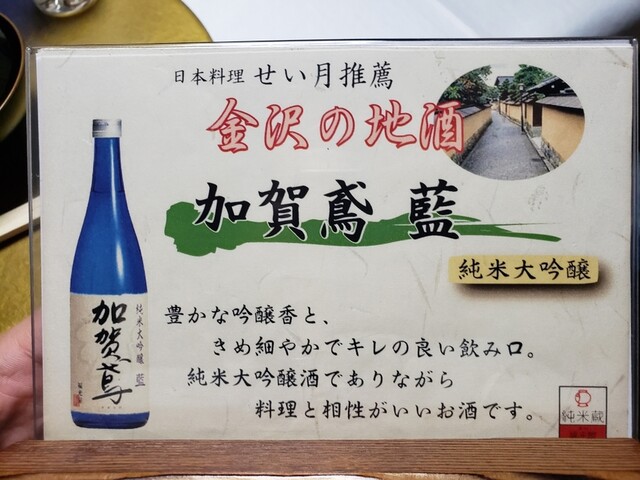 日本料理 せい月推薦
金沢の地酒
加賀鳶 藍
純米大吟醸
豊かな吟醸香と、
きめ細やかでキレの良い飲み口。
純米大吟醸酒でありながら
料理と相性がいいお酒です。
純米大吟醸 藍
加賀鳶
純米蔵